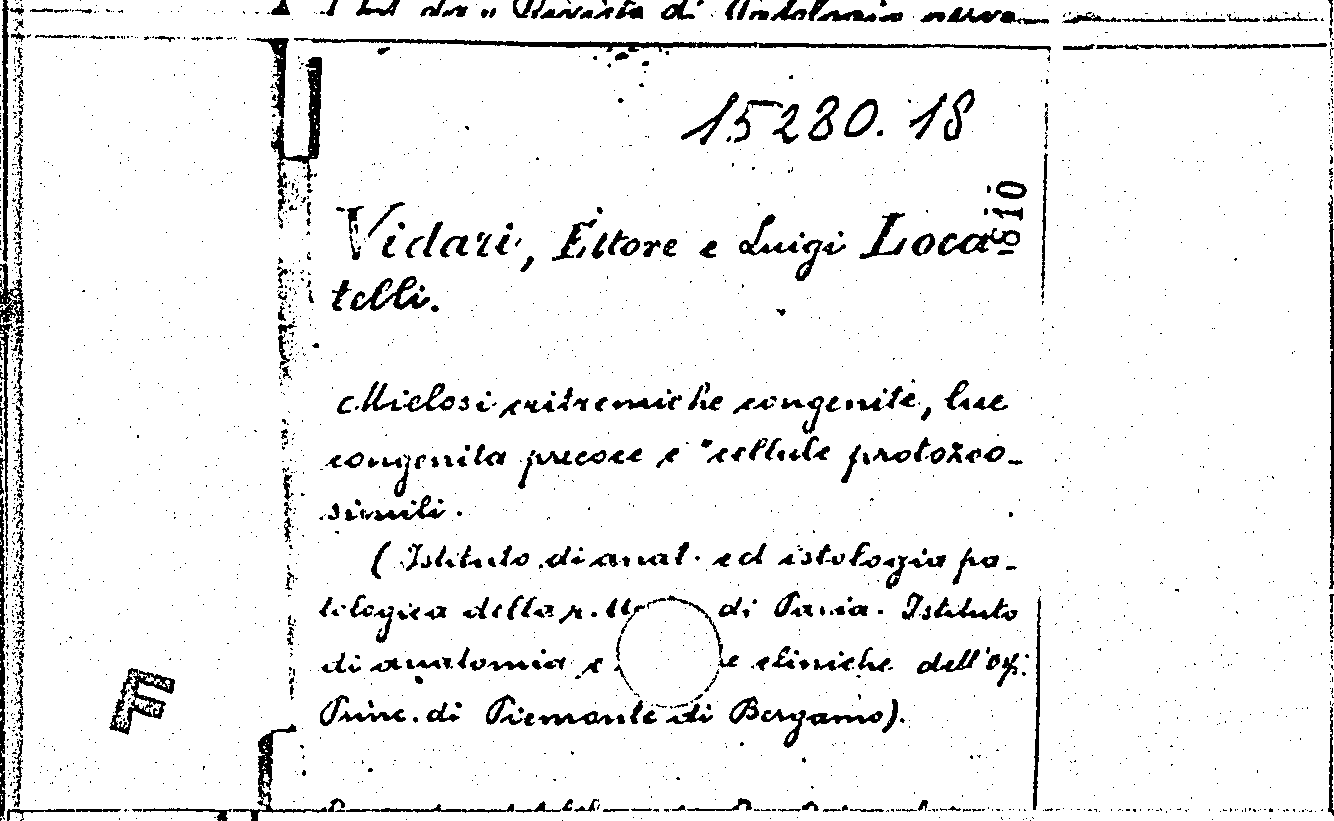 da "Rivista di Patologia nervo
15280.18
Vidari, Ettore e Luigi Loca
telli.
Mielosi eritremiche congenite, lue
congenita precoce e "cellule protozoo-
simili.
( Istituto di anat. ed istologia pa-
tologica della r. di Pavia. Istituto
di anatomia e cliniche dell'Osp.
Princ. di Piemonte di Bergamo).
F